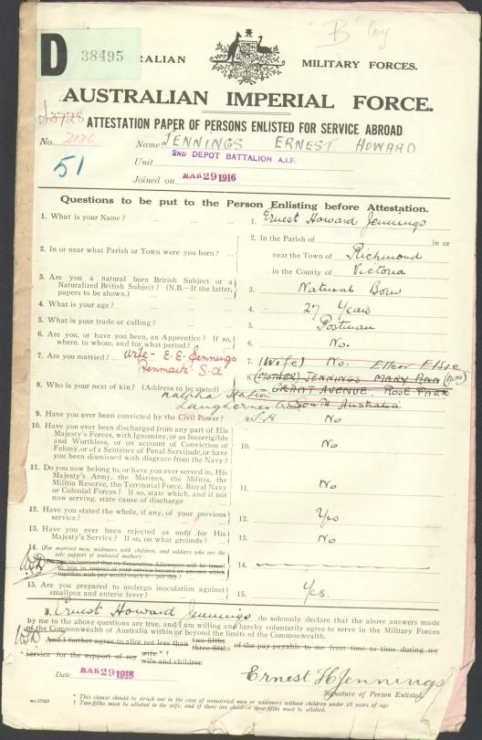 "B" Coy
D 38495
AUSTRALIAN MILITARY FORCES.
AUSTRALIAN IMPERIAL FORCE.
ATTESTATION PAPER OF PERSONS ENLISTED FOR SERVICE ABROAD
No. 2136 Name JENNINGS ERNEST HOWARD
51
Unit 2ND DEPOT BATTALION A.I.F.
Joined on MAR 29 1916
Questions to be put to the Person Enlisting before Attestation.
1. What is your Name? 1. Ernest Howard Jennings
2. In or near what Parish or Town were you born? 2. In the Parish of in or
near the Town of Richmond
in the County of Victoria
3. Are you a natural born British Subject or a
Naturalized British Subject? (N.B.—If the latter,
papers to be shown.) 3. Natural Born
4. What is your age? 4. 27 Years
5. What is your trade or calling? 5. Postman
6. Are you, or have you been, an Apprentice? If so,
where, to whom, and for what period? 6. No.
7. Are you married? Wife - E.E. Jennings 7. (Wife) No. Ellen Elsie
Renmark S.A
8. Who is your next of kin? (Address to be stated) 8. (MOTHER) JENNINGS MARY ANN (MRS)
GRANT AVENUE, ROSE PARK
South Australia
9. Have you ever been convicted by the Civil Power? 9. No
10. Have you ever been discharged from any part of His
Majesty's Forces, with Ignominy, or as Incorrigible
and Worthless, or on account of Conviction of
Felony, or of a Sentence of Penal Servitude, or have
you been dismissed with disgrace from the Navy? 10. No
11. Do you now belong to, or have you ever served in, His
Majesty's Army, the Marines, the Militia, the
Militia Reserve, the Territorial Force, Royal Navy
or Colonial Forces? If so, state which, and if not
now serving, state cause of discharge 11. No
12. Have you stated the whole, if any, of your previous
service? 12. Yes
13. Have you ever been rejected as unfit for His
Majesty's Service? If so, on what grounds? 13. No
14. (For married men, widowers with children, and soldiers who are the
sole support of widowed mother)—
Do you understand that no Separation Allowance will be issued
to you in respect of your service beyond an amount which
together with pay would reach 14.
15. Are you prepared to undergo inoculation against
smallpox and enteric fever? 15. Yes.
I, Ernest Howard Jennings do solemnly declare that the above answers made
by me to the above questions are true, and I am willing and hereby voluntarily agree to serve in the Military Forces
of the Commonwealth of Australia within or beyond the limits of the Commonwealth.
And I further agree to allot not less than two-fifths three-fifths of the pay payable to me from time to time during my
service for the support of my wife wife and children
Date MAR 29 1916 Ernest H Jennings
Signature of Person Enlisted.
* This clause should be struck out in the case of unmarried men or widowers without children under 18 years of age
† Two-fifths must be allotted to the wife, and if there are children three-fifths must be allotted.